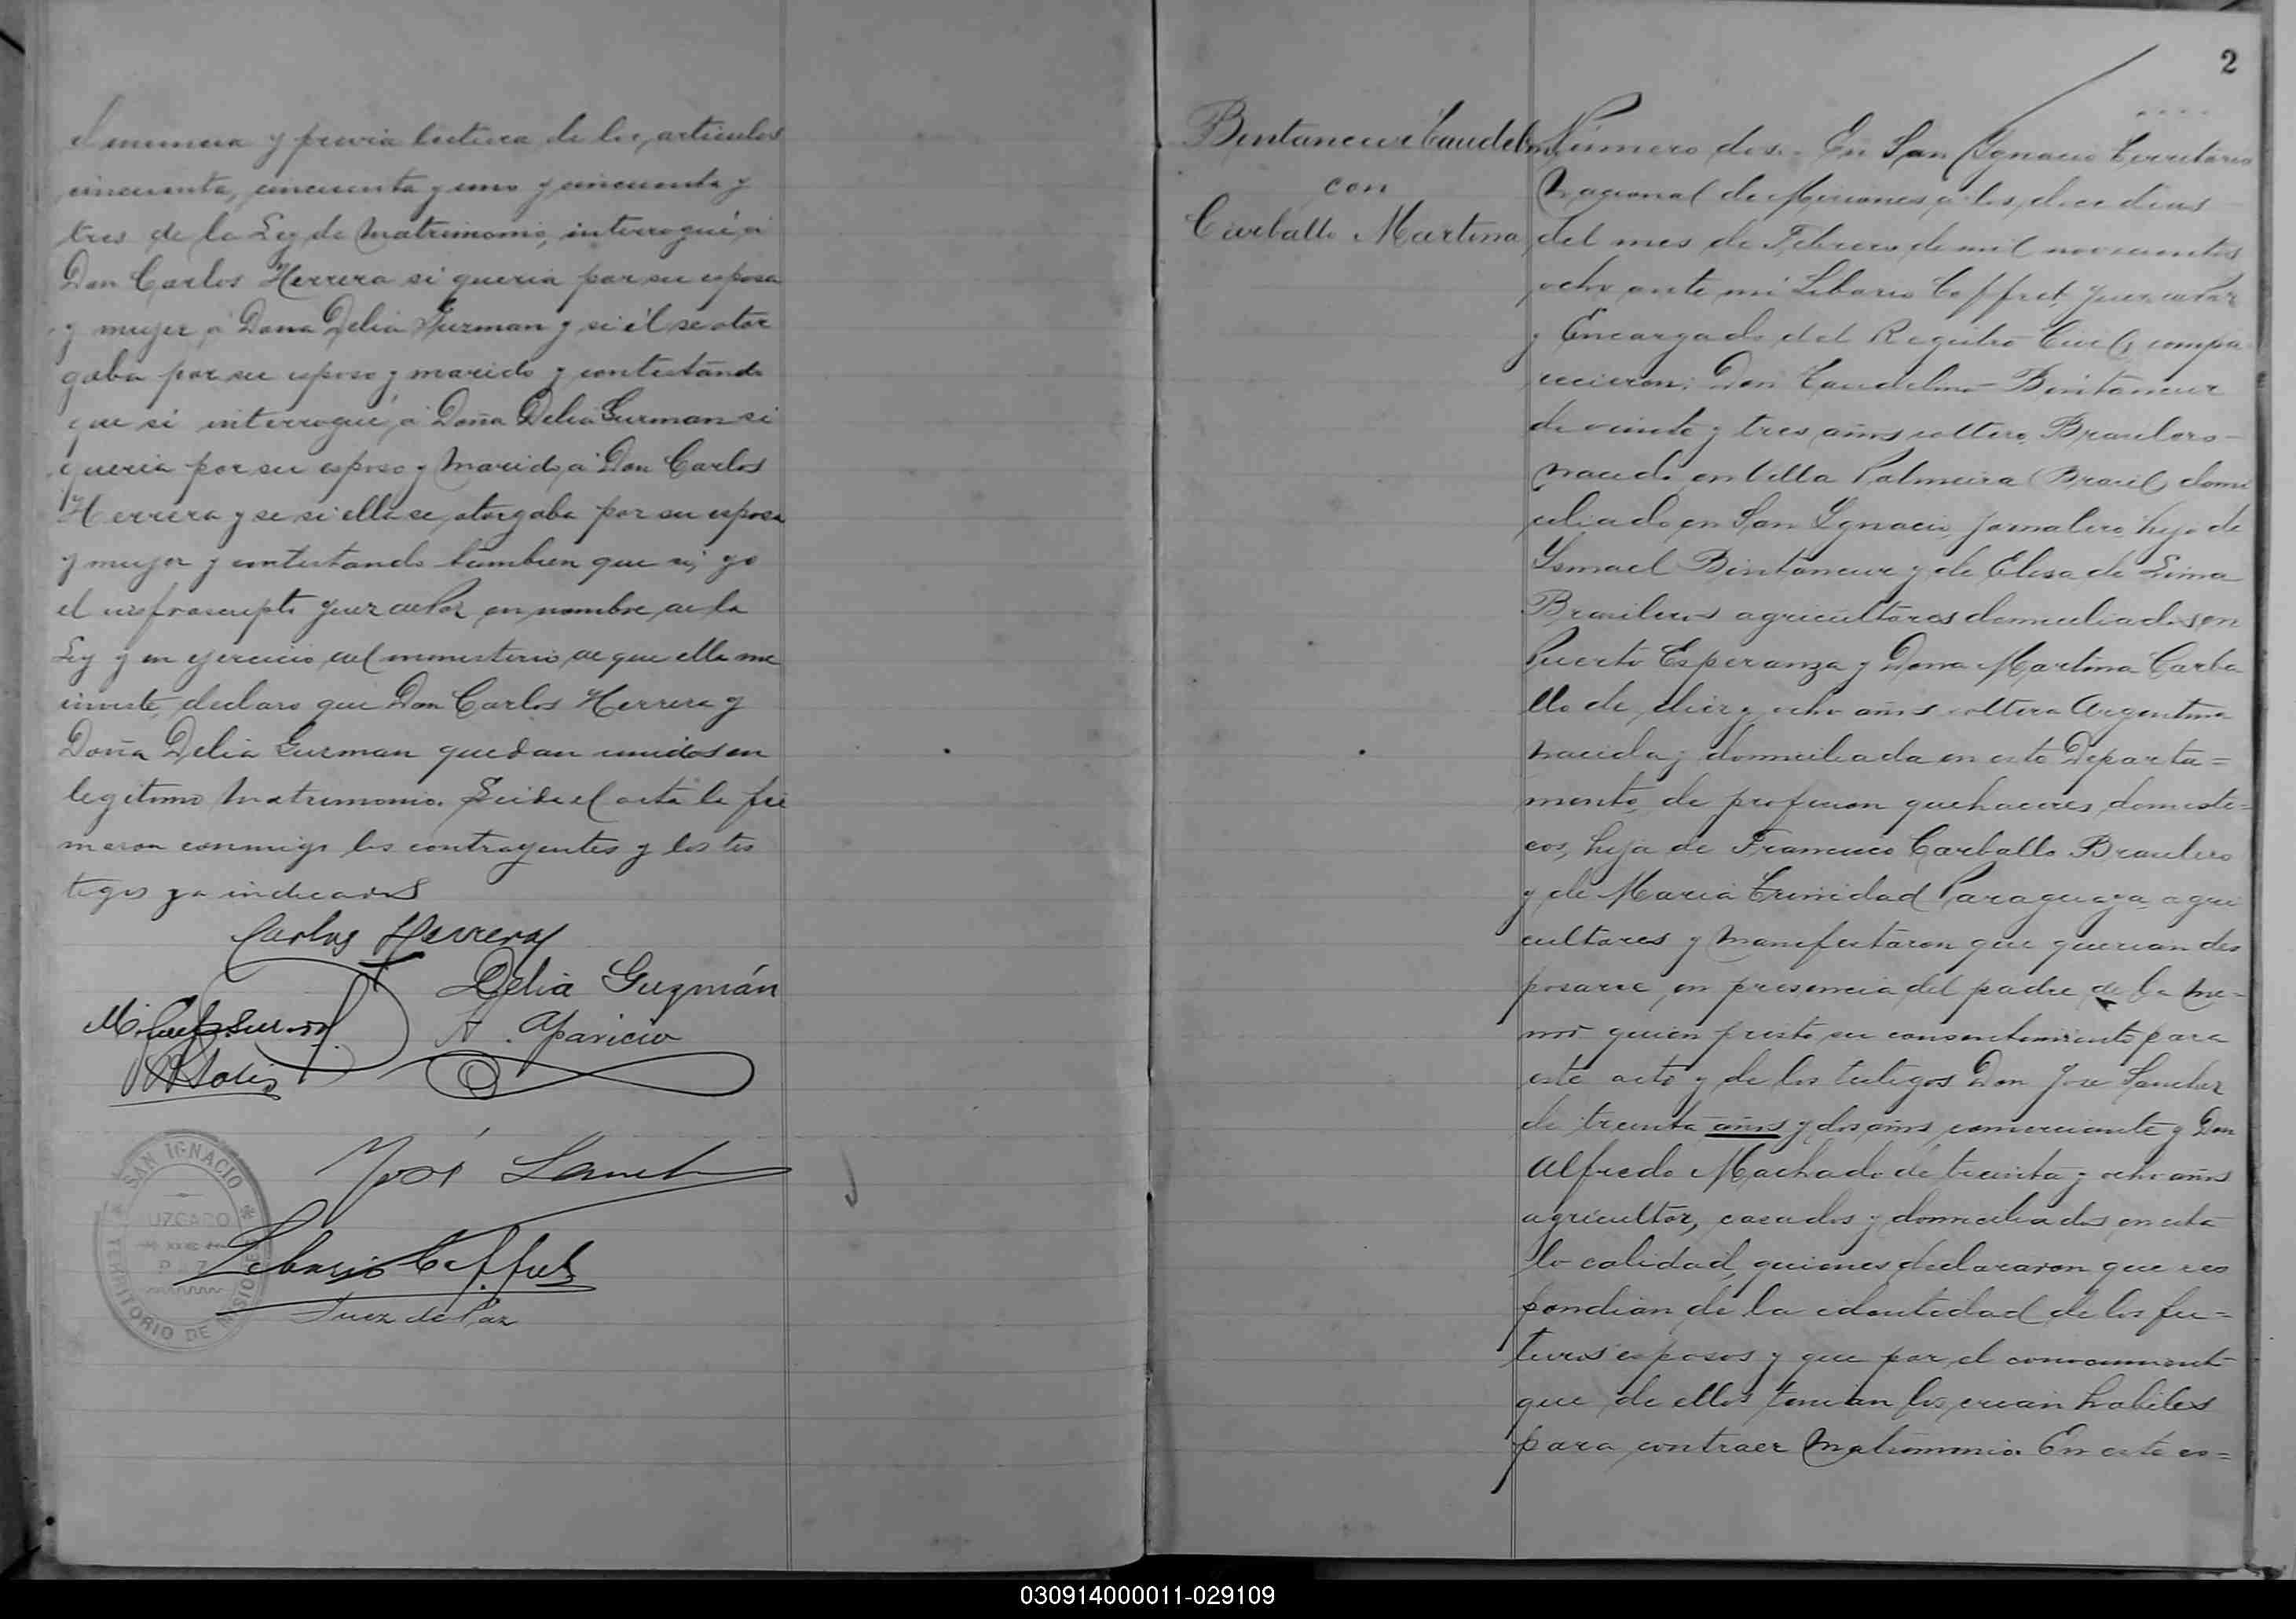 denuncia y previa lectura de los articulos
cincuenta, cincuenta y uno y cincuenta y
tres de la Ley de Matrimonio, interrogué á
Don Carlos Herrera si queria por su esposa
y mujer á Doña Delia Guzman y si él se otor
gaba por su esposo y marido y contestando
que si interrogué á Doña Delia Guzman si
queria por su esposo y marido, a Don Carlos
Herrera y se si ella se otorgaba por su esposa
y mujer y contestando tambien que si, yo
el infrascripto Juez de Paz en nombre de la
Ley y en ejercicio del ministerio de que ella me
inviste, declaro que Don Carlos Herrera y
Doña Delia Guzman quedan unidos en
legitimo Matrimonio. Leida el acta la fir
maron conmigo los contrayentes y los tes
tigos ya indicados
Carlos Herrera
Delia Guzmán
A. Aparicio
José Sanch
Liborio Caffret
Juez de Paz
SAN IGNACIO
JUZGADO
DE
PAZ
TERRITORIO DE MISIONES
2
Bentancur Caudelino
con
Carballo Martina
Número dos. En San Ygnacio Territorio
Nacional de Misiones á los doce dias
del mes de Febrero de mil novecientos
ocho ante mi Liborio Caffret, Juez de Paz
y Encargado del Registro Civil, compa
recieron: Don Caudelino Bentancur
de veinte y tres años soltero, Brasilero
nacido en Villa Palmeira (Brasil) domi
ciliado en San Ygnacio, jornalero, hijo de
Ysmael Bintancur y de Elisa de Lima
Brasileros agricultores domiciliados en
Puerto Esperanza y Dona Martina Carba
llo de diez y ocho años soltera Argentina
nacida y domiciliada en este Departa=
mento, de profesion quehaceres domesti=
cos, hija de Francisco Carballo Brasilero
y de Maria Trinidad Paraguaya, agri
cultores y manifestaron que querian des
posarse, en presencia del padre de la me-
nor quien presto su consentimiento para
este acto y de los testigos Don Jose Sanchez
de treinta años y dos años, comerciante y Don
Alfredo Machado de treinta y ocho años
agricultor, casados y domiciliados en esta
localidad, quienes declararon que res
pondian de la identidad de los fu=
turos esposos y que por el conocimiento
que de ellos tenian los creian habiles
para contraer Matrimonio. En este es=
030914000011-029109